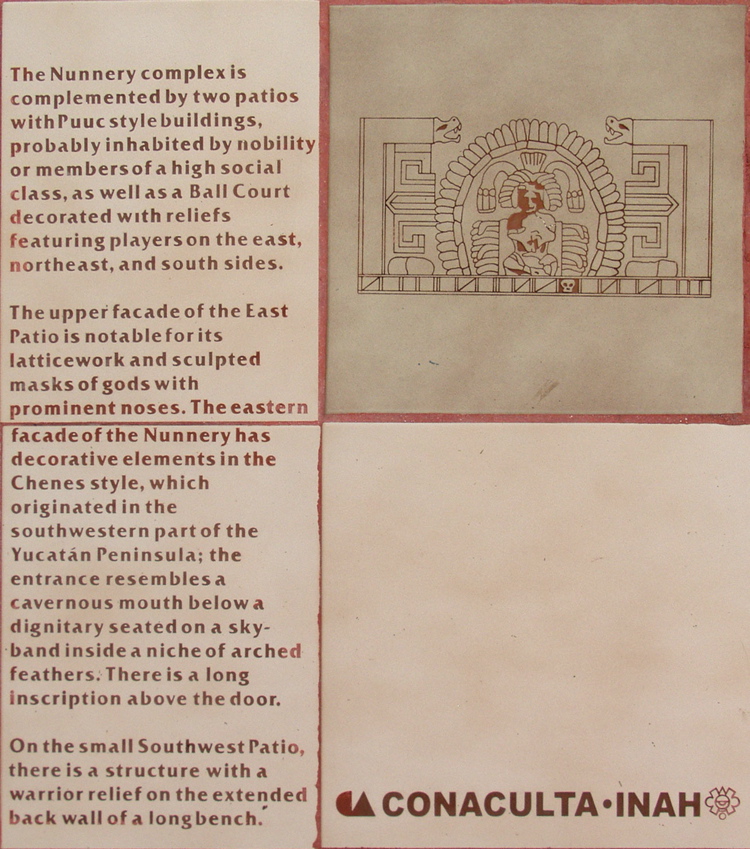 The Nunnery complex is
complemented by two patios
with Puuc style buildings,
probably inhabited by nobility
or members of a high social
class, as well as a Ball Court
decorated with reliefs
featuring players on the east,
northeast, and south sides.
The upper facade of the East
Patio is notable for its
latticework and sculpted
masks of gods with
prominent noses. The eastern
facade of the Nunnery has
decorative elements in the
Chenes style, which
originated in the
southwestern part of the
Yucatán Peninsula; the
entrance resembles a
cavernous mouth below a
dignitary seated on a sky-
band inside a niche of arched
feathers. There is a long
inscription above the door.
On the small Southwest Patio,
there is a structure with a
warrior relief on the extended
back wall of a long bench.
CONACULTA•INAH